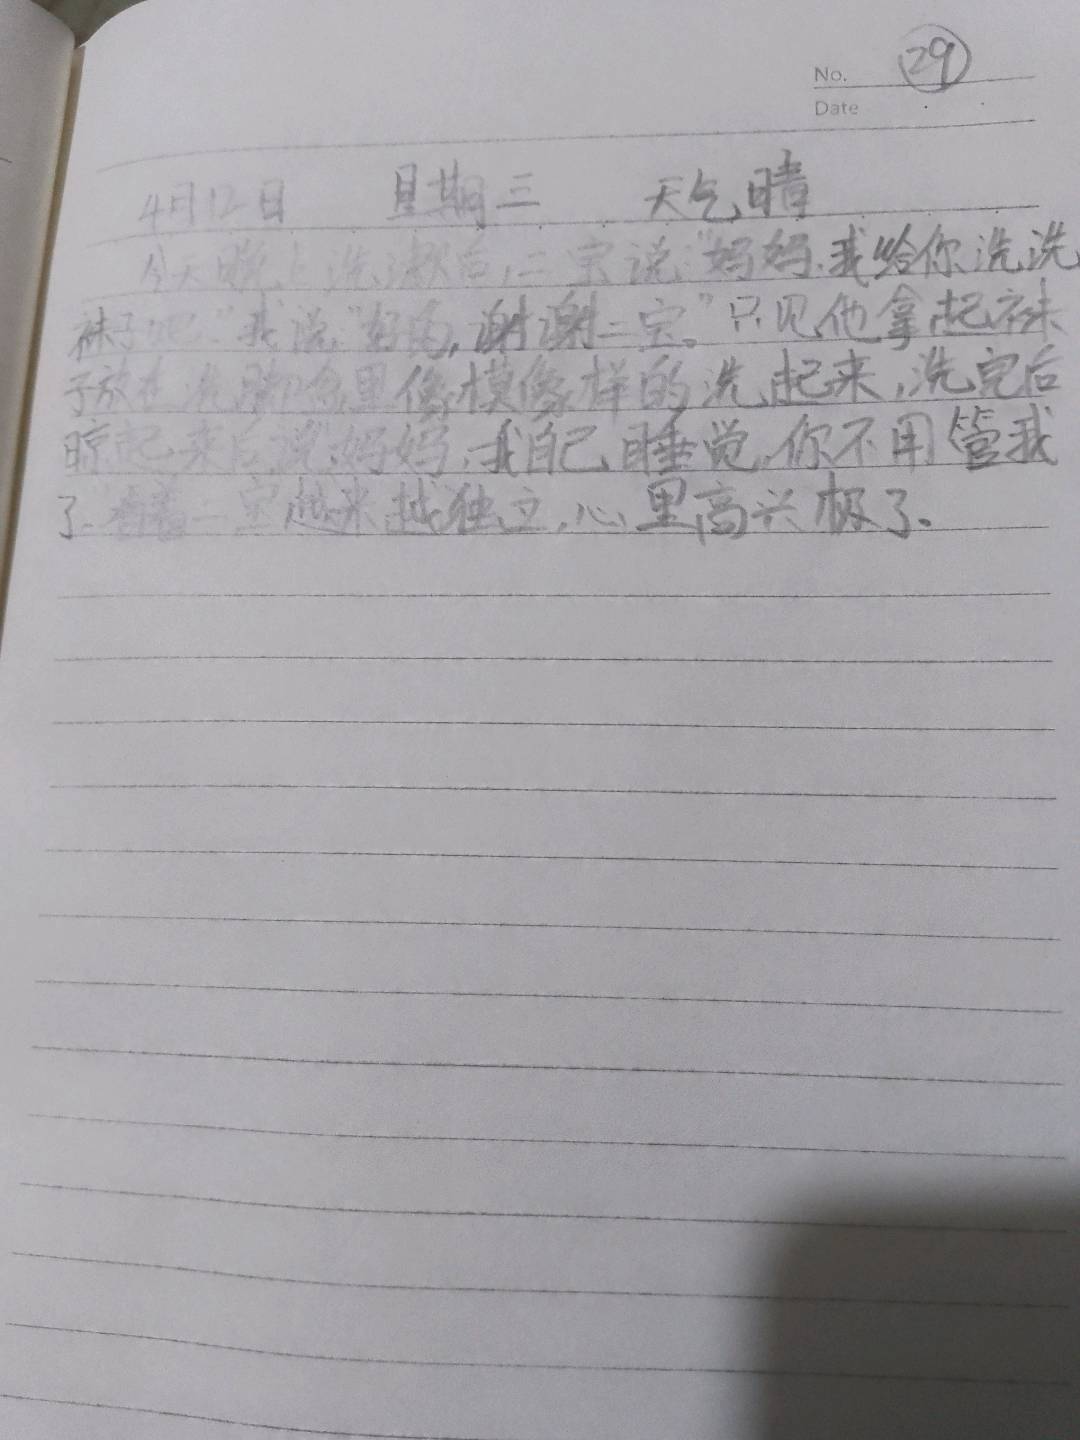 No. 29
Date
4月12日 星期三 天气晴
今天晚上洗漱后,二宝说:"妈妈,我给你洗洗
袜子吧."我说"好的,谢谢二宝。"只见他拿起袜
子放在洗脚盆里像模像样的洗起来,洗完后
晾起来后说"妈妈,我自己睡觉,你不用管我
了.看着二宝越来越独立,心里高兴极了.